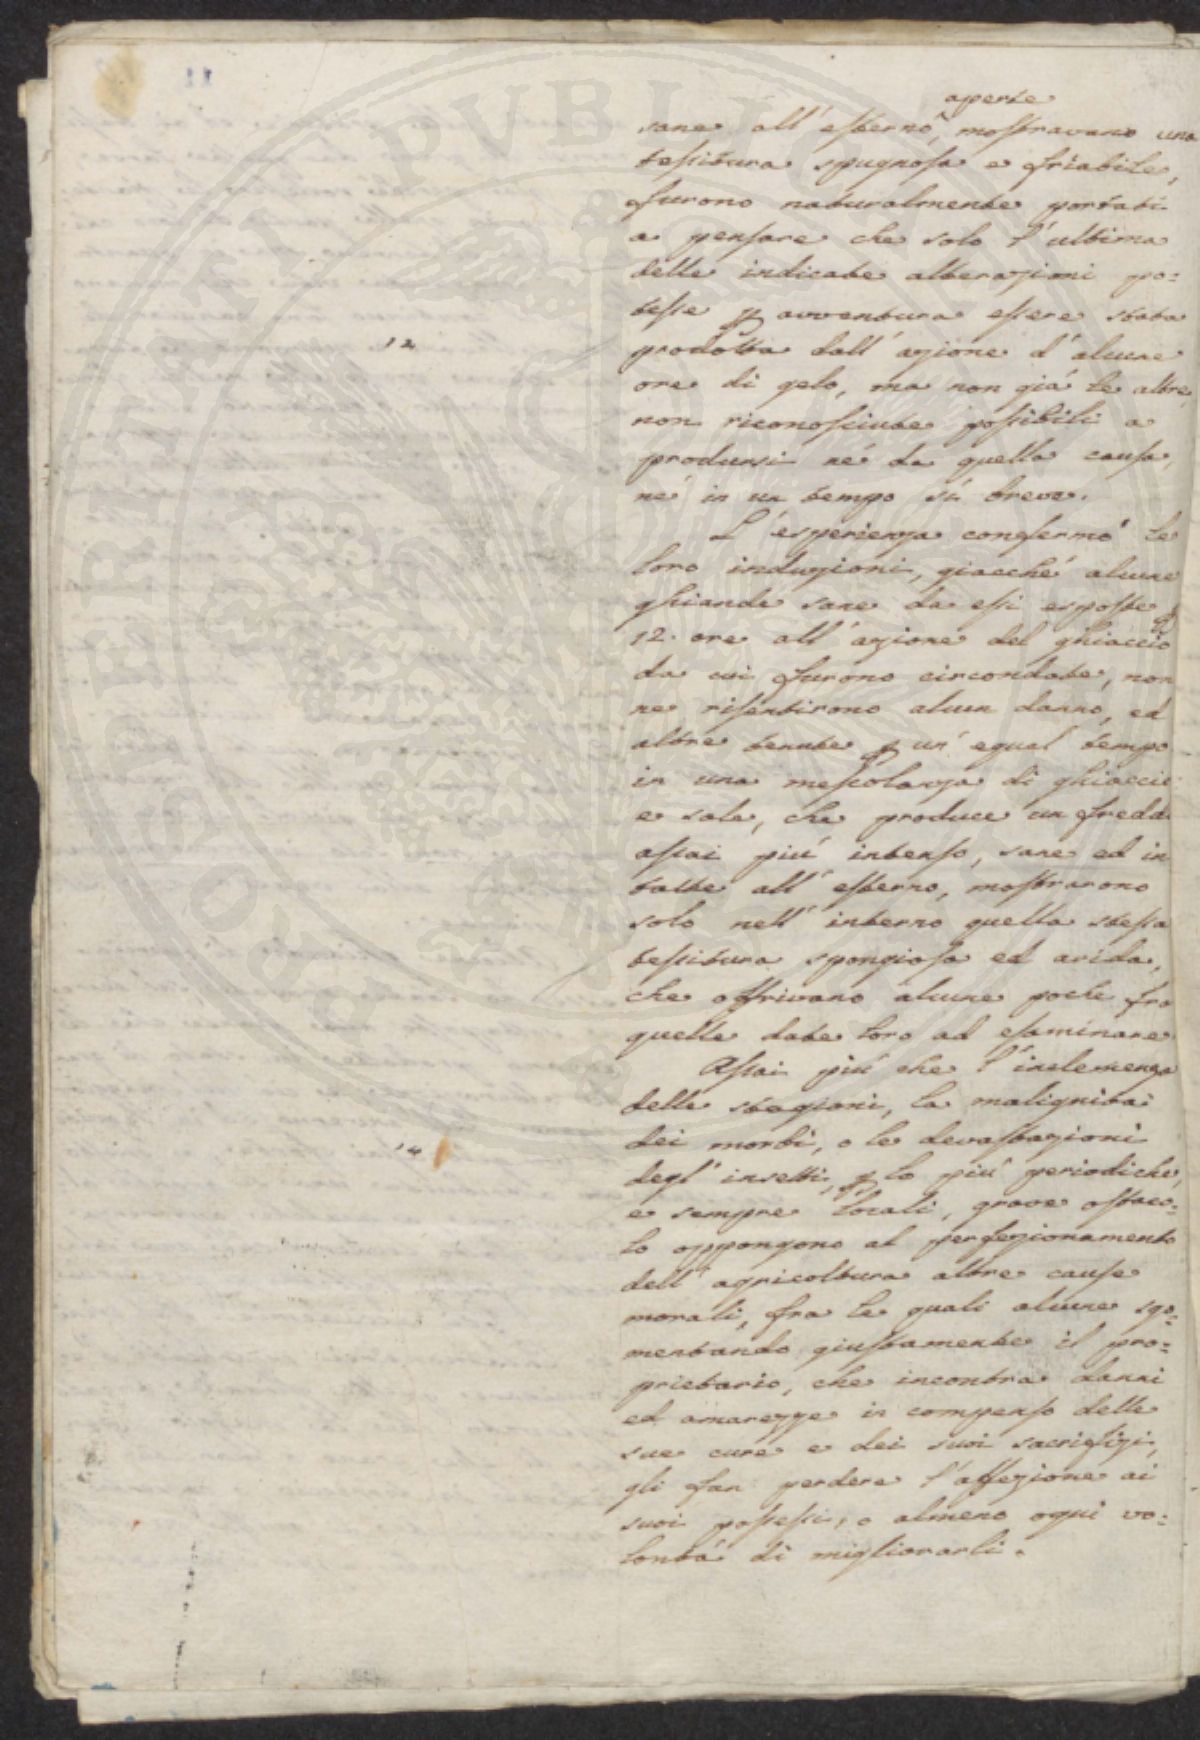 aperte
sane all'esterno, mostravano una
tessitura spugnosa e friabile,
furono naturalmente portati
a pensare che solo l'ultima
delle indicate alterazioni po=
tesse p avventura essere stata
12
prodotta dall'azione d'alcune
ore di gelo, ma non già le altre,
non riconosciute possibili a
prodursi né da quella causa,
né in un tempo sì breve.
L'esperienza confermò le
loro induzioni, giacché alcune
ghiande sane da essi esposte p
12. ore all'azione del ghiaccio
da cui furono circondate, non
ne risentirono alcun danno, ed
altre tenute p un'egual tempo
in una mescolanza di ghiaccio
e sale, che produce un freddo
assai più intenso, sane ed in
tatte all'esterno, mostrarono
solo nell'interno quella stessa
tessitura spongiosa ed arida,
che offrivano alcune poche fra
quelle date loro ad esaminare
Assai più che l'inclemenza
delle stagioni, la malignità
14
dei morbi, o le devastazioni
degl'insetti, p lo più periodiche,
e sempre locali, grave ostaco=
lo oppongono al perfezionamento
dell'agricoltura altre cause
morali, fra le quali alcune sgo=
mentando giustamente il pro=
prietario, che incontra danni
ed amarezze in compenso delle
sue cure e dei suoi sacrifizi,
gli fan perdere l'affezione ai
suoi possessi, o almeno ogni vo=
lontà di migliorarli.
11
PROSPERITATI PVBLICAE